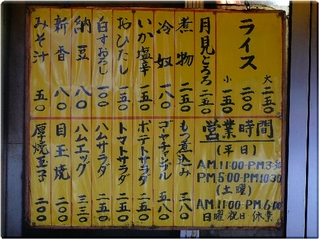 ライス
大 二〇〇
小 一五〇
月見とろろ 二五〇
煮物 二五〇
冷奴 一八〇
いか塩辛 一五〇
おひたし 一五〇
白すおろし 一〇〇
納豆 八〇
新香 八〇
みそ汁 五〇
営業時間
(平日)
A.M.11:00-P.M.
P.M.5:00-P.M.10:30
(土曜)
A.M.11:00-P.M.6:00
日曜祝日休業
もつ煮込み 三八〇
ゴーヤチャンプル 五八〇
ポテトサラダ 二五〇
トマトサラダ 二五〇
ハムサラダ
ハムエッグ 三三〇
目玉焼 二〇〇
厚焼玉子 二〇〇